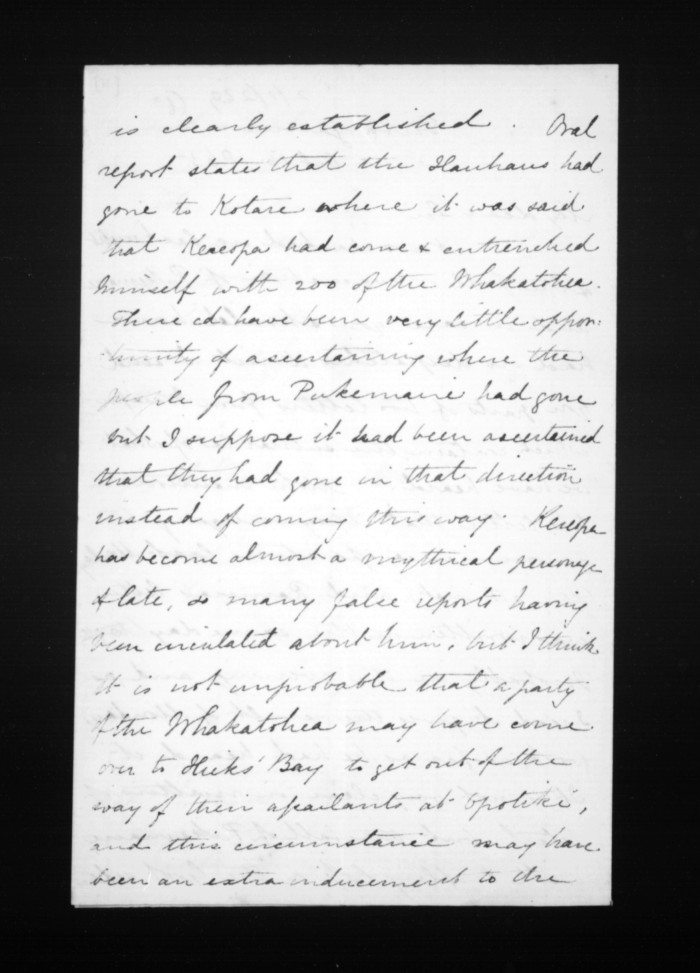 is clearly established. Oral
report states that the Hauhaus had
gone to Kotare where it was said
that Kereopa had come & entrenched
himself with 200 of the Whakatohea.
There cd. have been very little oppor:
tunity of ascertaining where the
people from Pukemaire had gone
but I suppose it had been ascertained
that they had gone in that direction
instead of coming this way. Kereopa
has become almost a mythical personage
of late, so many false reports having
been circulated about him, but I think
it is not improbable that a party
of the Whakatohea may have come
over to Hicks' Bay to get out of the
way of their assailants at Opotiki,
and this circumstance may have
been an extra inducement to the